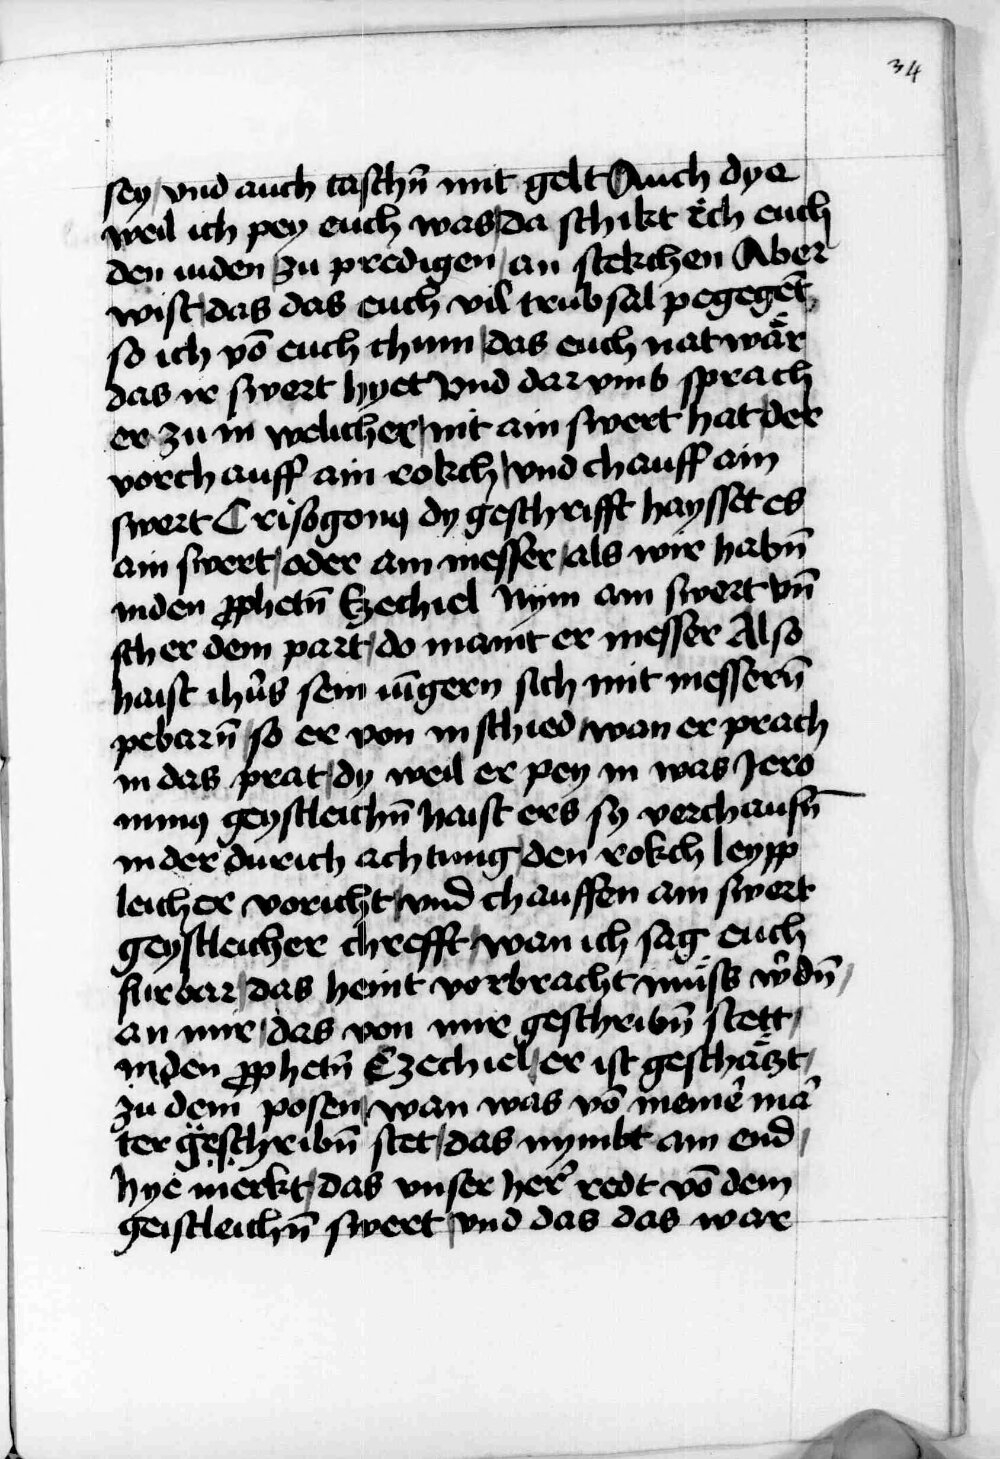 34
sey / vnd auch taschn̄ mit gelt Auch dye
weil ich pey euch was / da schikt ich euch
den iuden zu predigen / an stekchen Aber
wist / das das euch vil trubsal pegegēt
so ich vō euch chum / das euch nat wär
das ir swert hyet Vnd dar vmb sprach
er zu in welicher / nit ain swert hat / der
vorchauff ain rokch / vnd chauff ain
swert Crisogonꝰ dy geschrifft haysset es
ain swert / oder ain messer / als wir habn̄
in den ꝓphetn̄ Ezechiel Nym ain swert vn̄
scher dem part / do maint er messer Also
haist ihūs sein iūgern sich mit messern̄
pebarn̄ / so er von in schied / wan er prach
in das prat / dy weil er pey in was Jero
nimꝰ geystleichn̄ haist ers sy verchaufn̄
in der durich achtung / den rokch leypp
leicher voricht / vnd chauffen ain swert
geystleicher chrefft / wan ich sag euch
furbar / das heint vorbracht muͤss ẘdn̄ /
an mir / das von mir geschribn̄ stett /
in den ꝓphetn̄ Ezechiel / er ist geschätzt /
zu dem posen / wan was vō meineͬ mā
ter geschribn̄ stet / das nymbt ain end /
hye merkt / das vnser herͬ redt vō dem
geistleichn̄ swert / vnd das das war